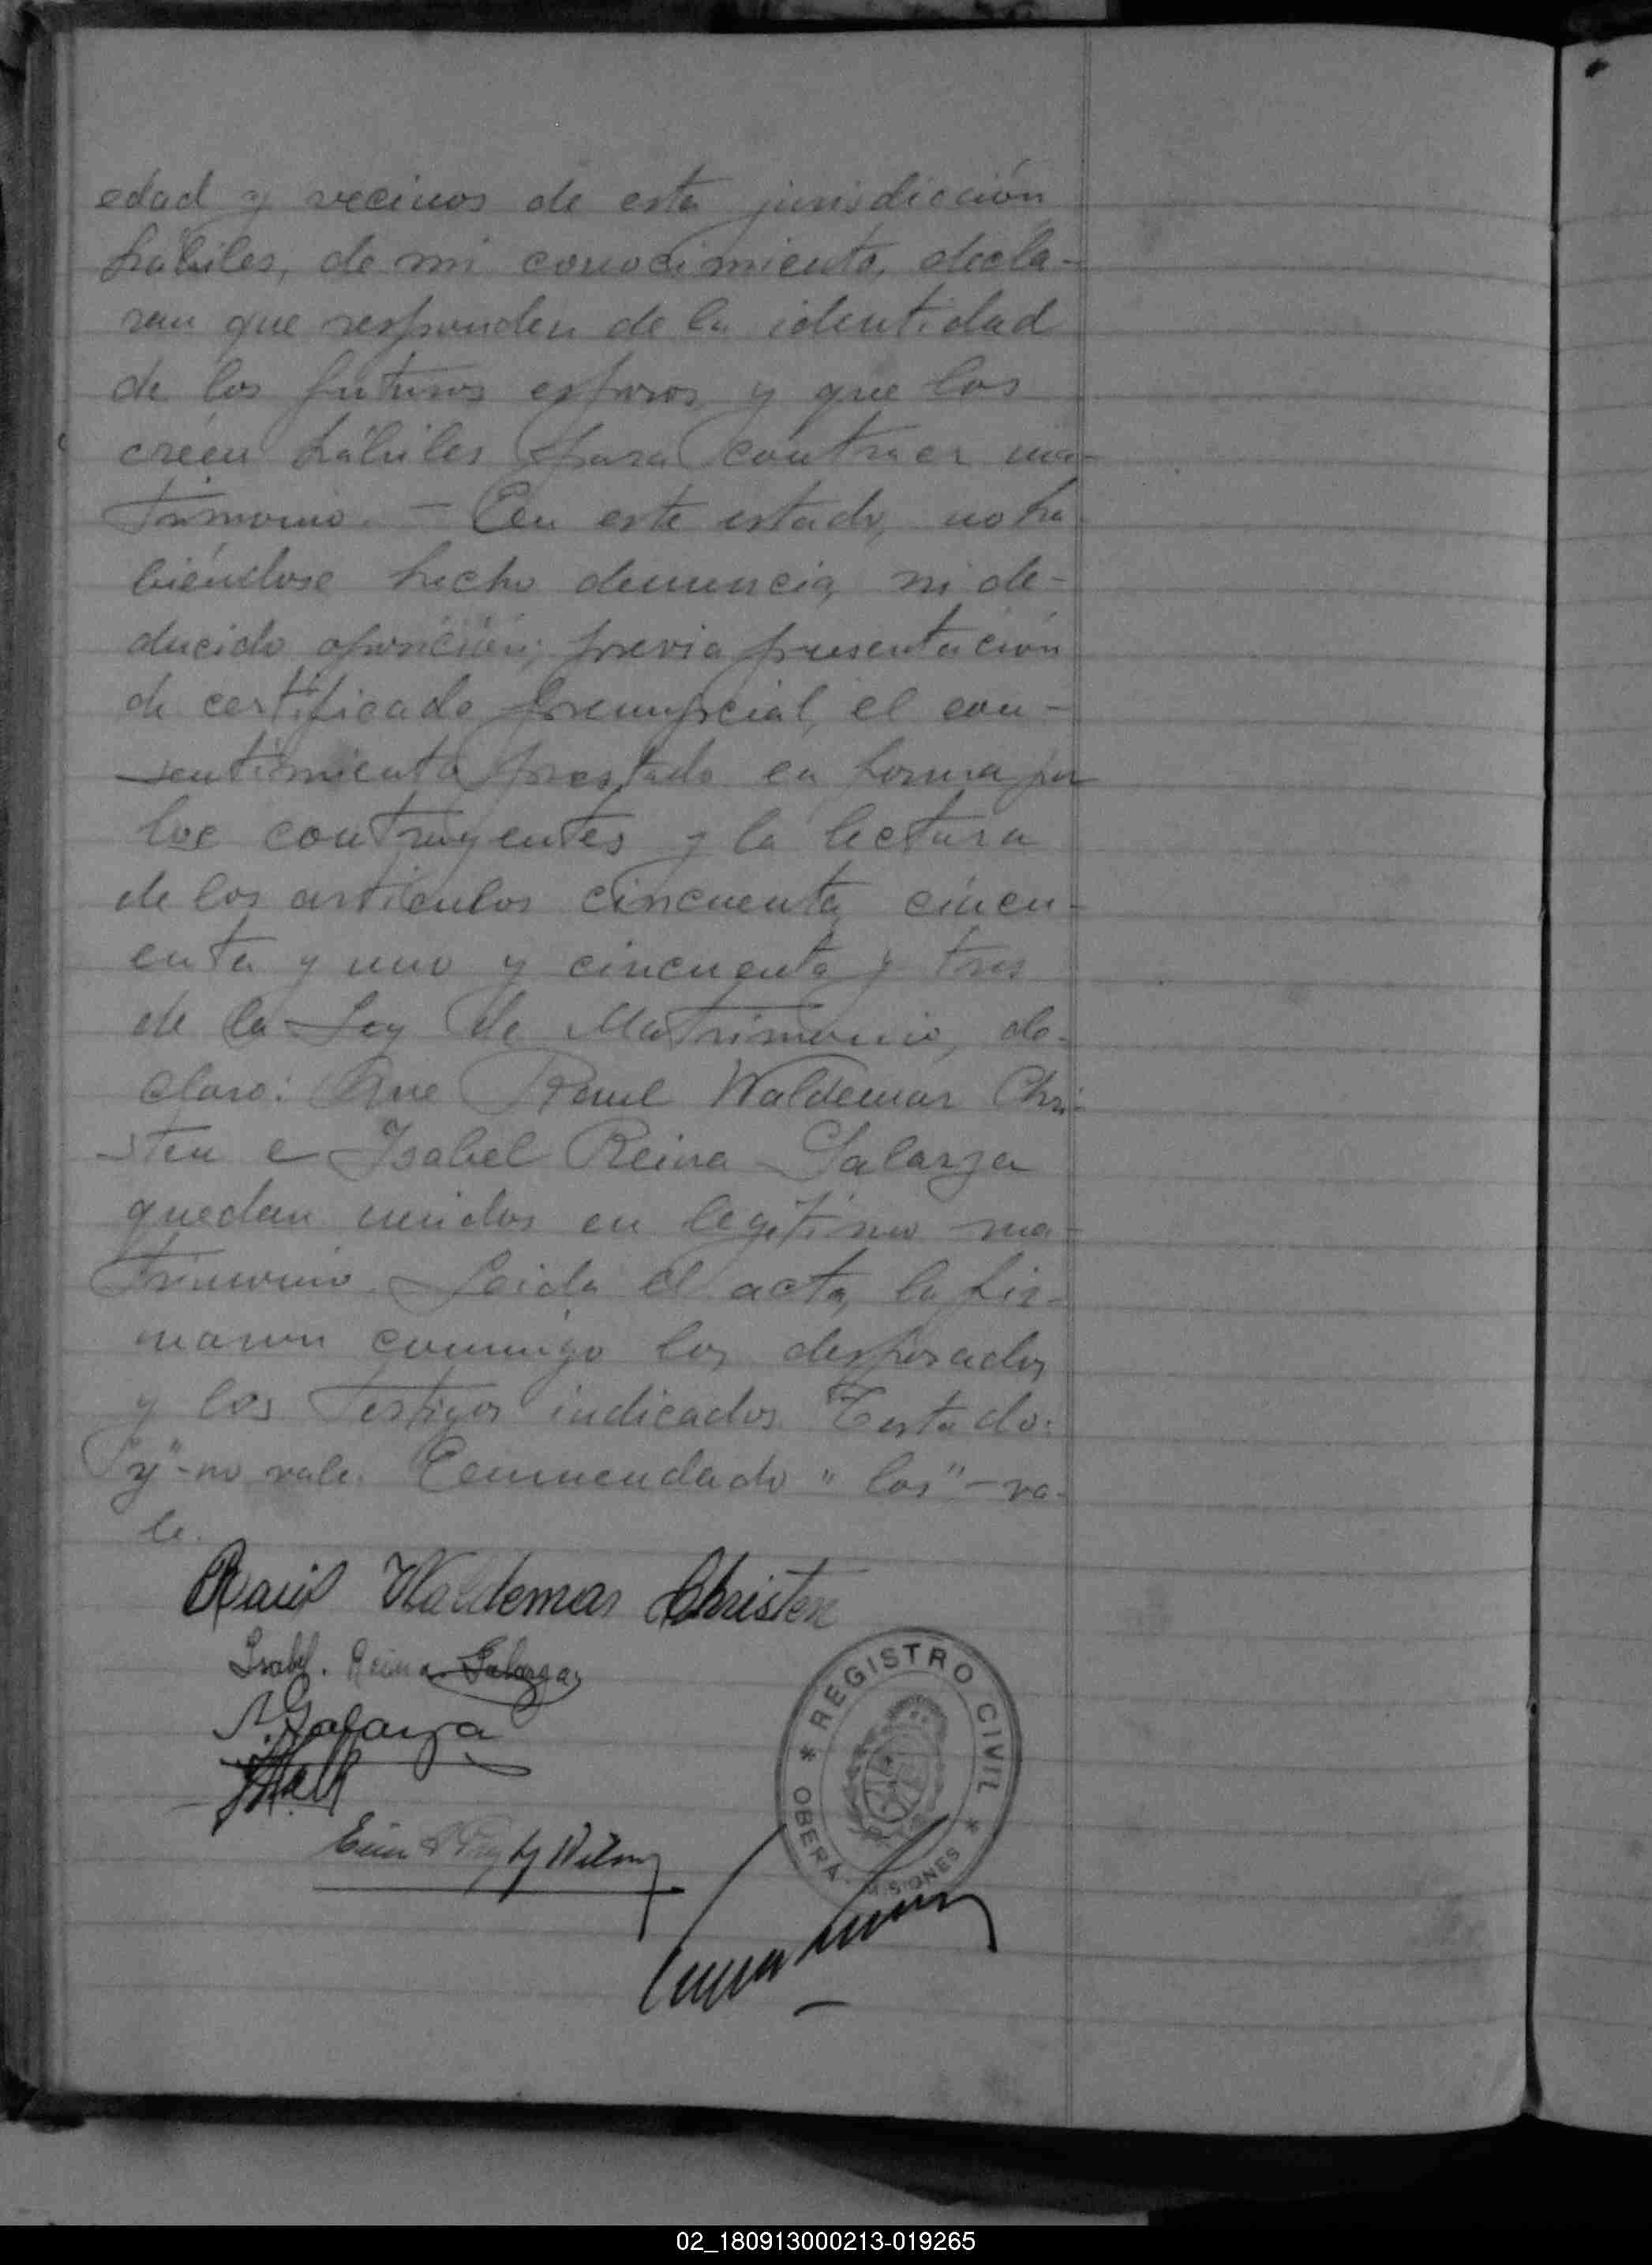 edad y vecinos de esta jurisdicción
hábiles, de mi conocimiento, decla-
ran que responden de la identidad
de los futuros esposos y que los
créen hábiles para contraer ma-
trimonio. - En este estado, no ha
biéndose hecho denuncia, ni de-
ducido oposición; previa presentación
de certificado prenupcial, el con-
sentimiento prestado en forma por
los contrayentes y la lectura
de los artículos cincuenta, cincu-
enta y uno y cincuenta y tres
de la Ley de Matrimonio, de-
claro: Que Raul Waldemar Chri-
sten e Isabel Reina Galarza
quedan unidos en legítimo ma-
trimonio. Leida el acta, la fir-
maron conmigo los desposados
y los testigos indicados. Testado:
"y"-no vale. Enmendado "los"-va-
le.
Raúl Waldemar Christen
Isabel. Reina Galarza
Galarza
REGISTRO CIVIL
OBERÁ - MISIONES
02_180913000213-019265